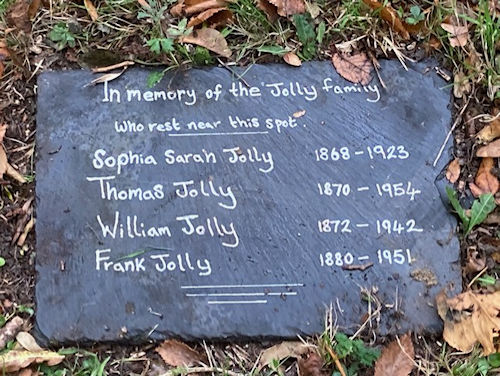 In memory of the Jolly family
who rest near this spot.
Sophia Sarah Jolly 1868-1923
Thomas Jolly 1870-1954
William Jolly 1872-1942
Frank Jolly 1880-1951